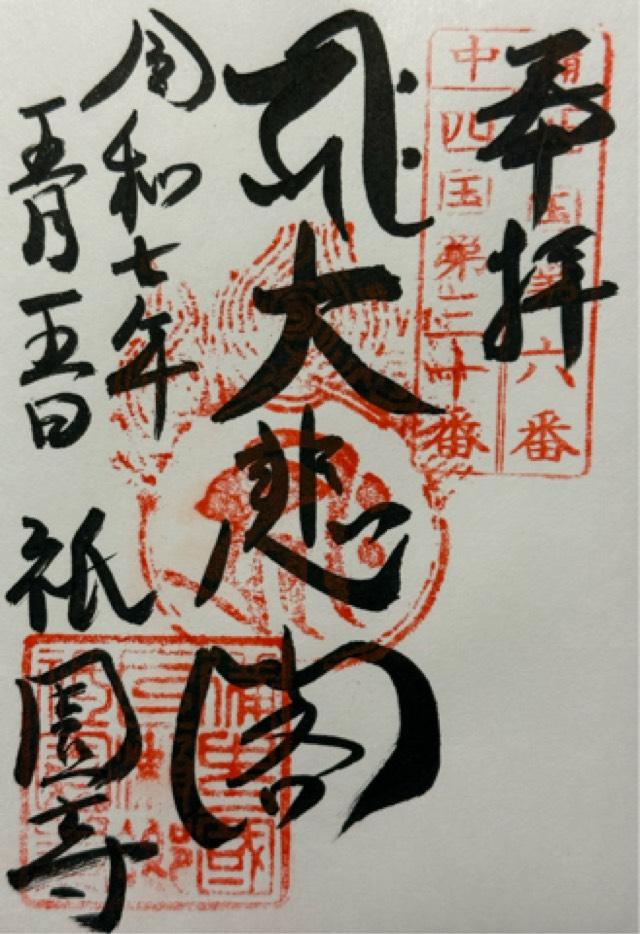 奉拝
備北国第六番
中四国第三十番
大悲閣
令和七年
五月五日
祇園寺